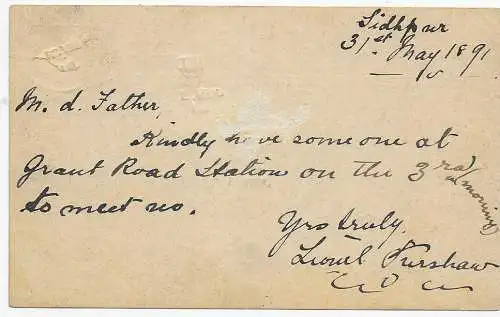 Sidhpur
31st May 1891
M. d. Father,
Kindly have someone at
Grant Road Station on the 3rd (morning)
to meet us.
Yrs truly.
Lionel Purshaw